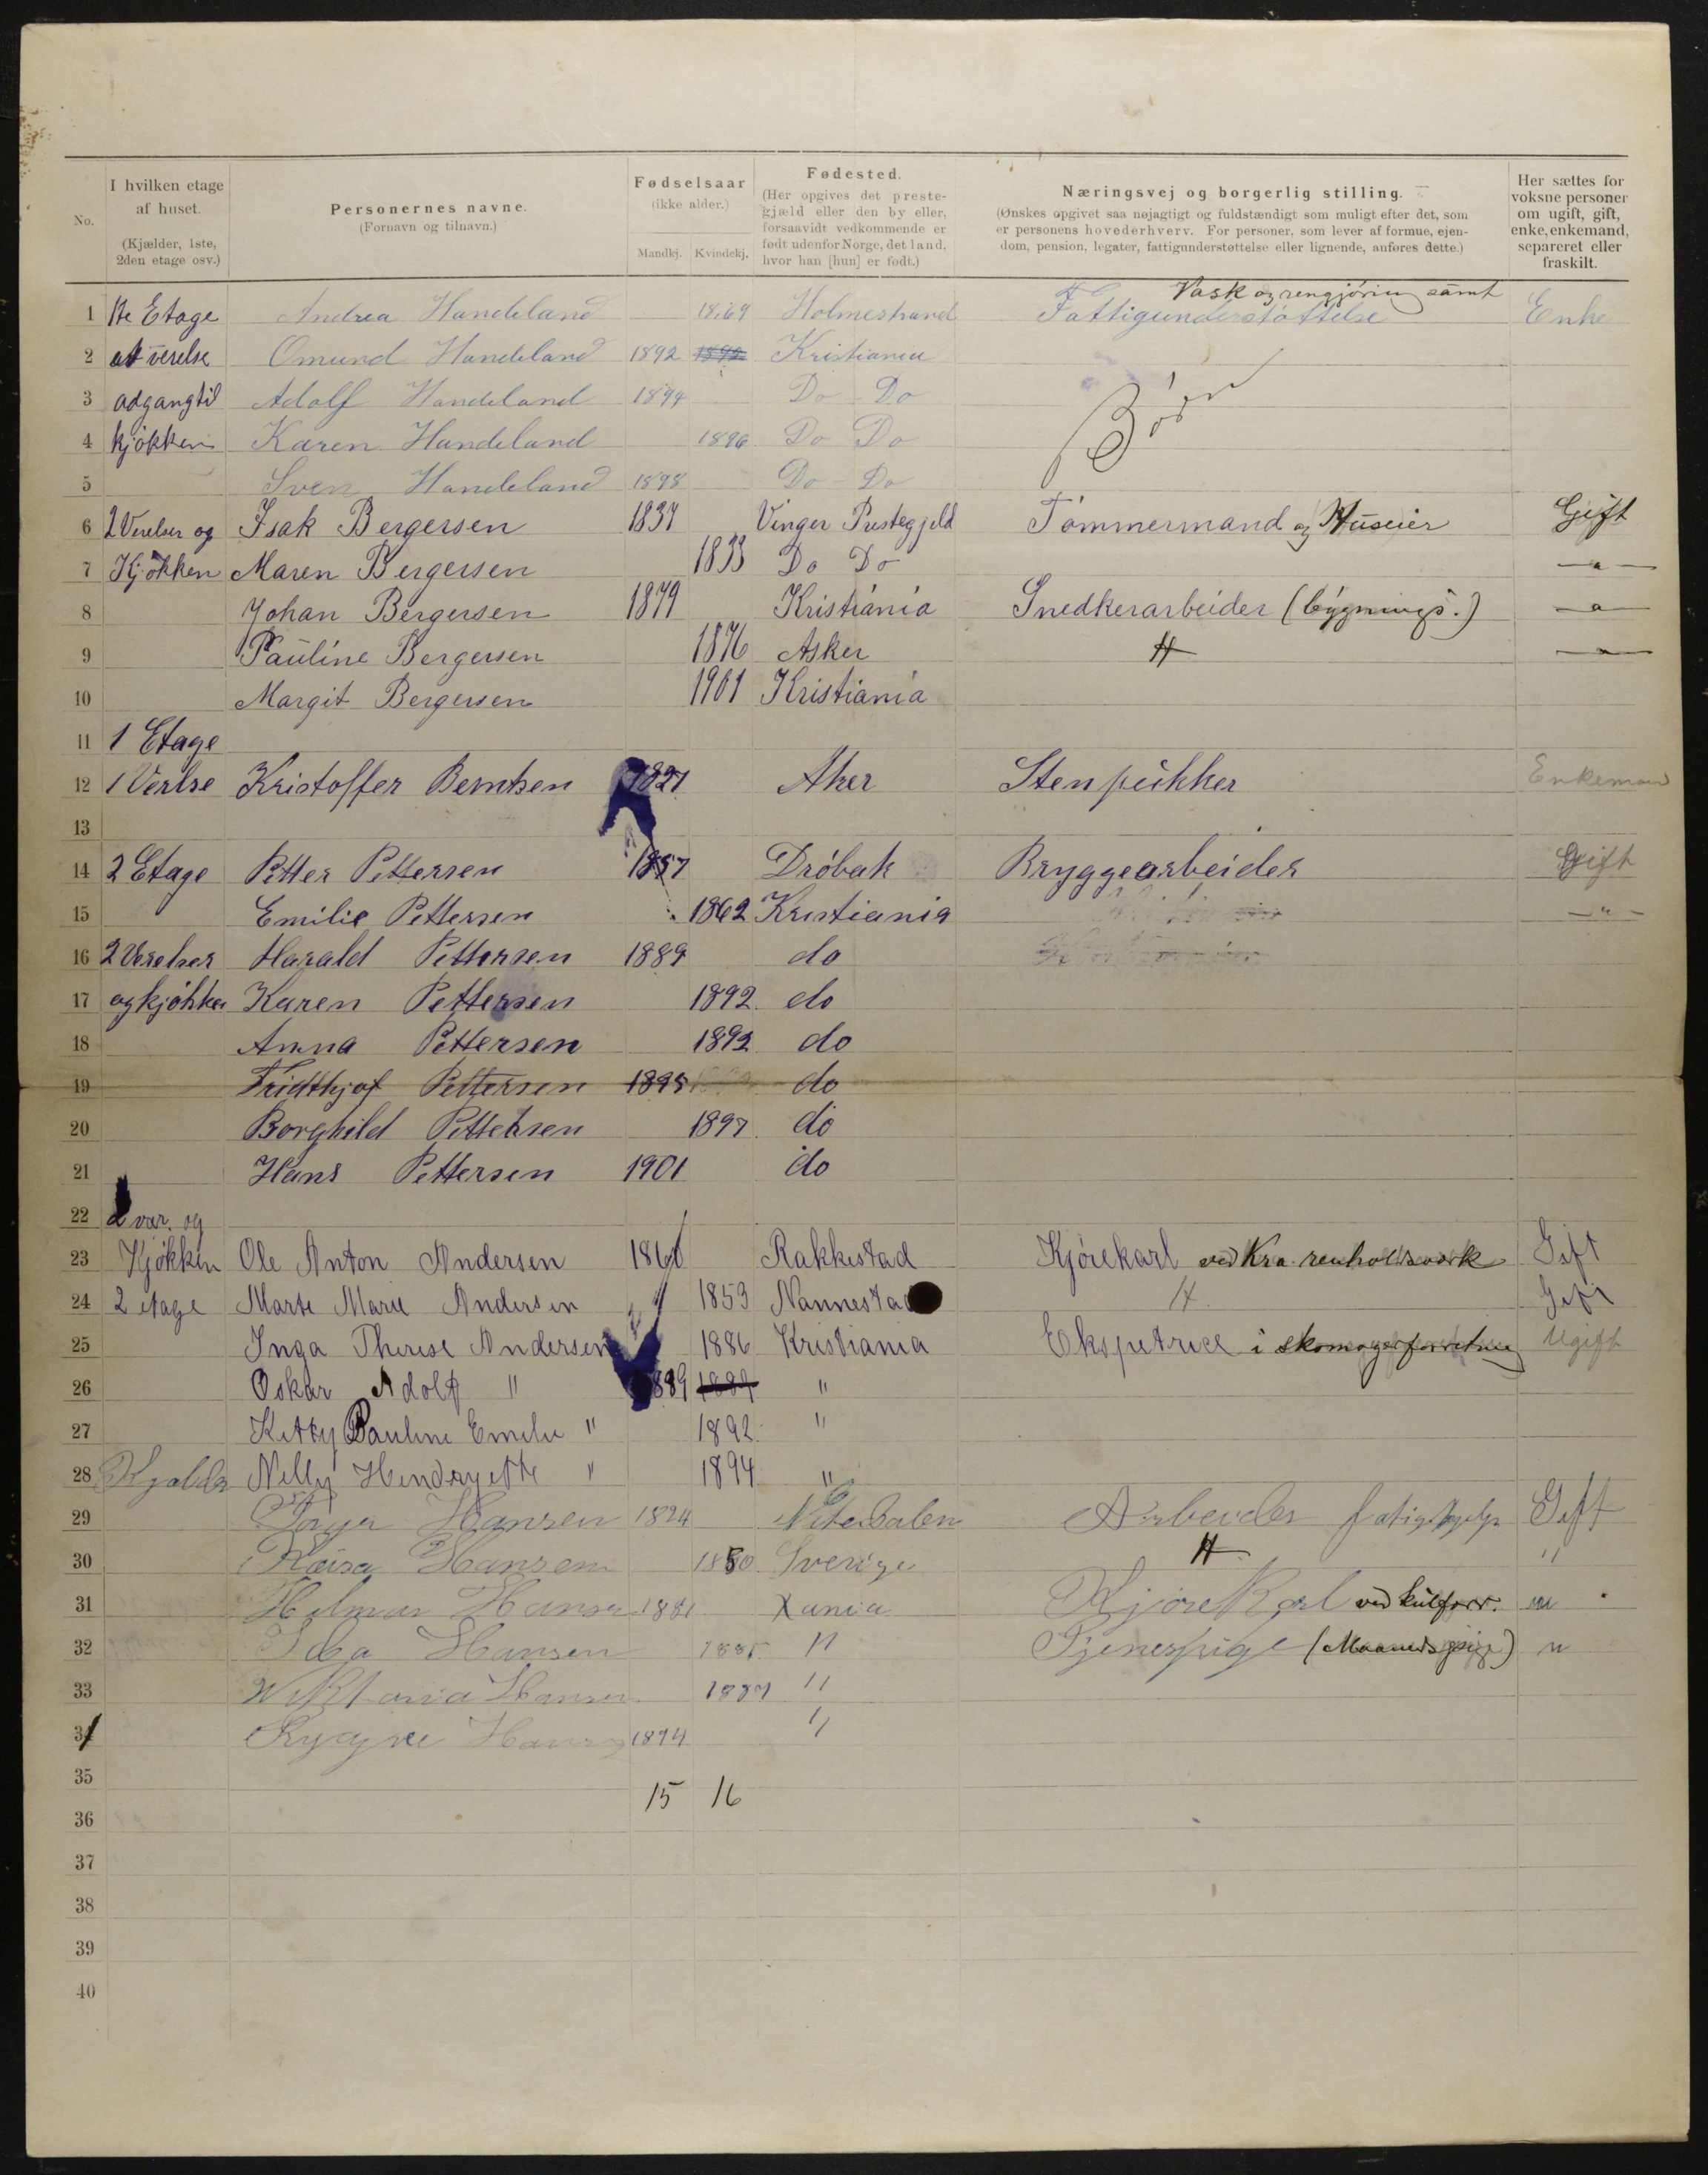 No.
I hvilken etage af huset. (Kjælder, 1ste, 2den etage osv.)
Personernes navne. (Fornavn og tilnavn.)
Fødselsaar (ikke alder.) Mandkj. Kvindekj.
Fødested. (Her opgives det prestegjæld eller den by eller, forsaavidt vedkommende er født udenfor Norge, det land, hvor han [hun] er født.)
Næringsvej og borgerlig stilling. (Ønskes opgivet saa nøjagtigt og fuldstændigt som muligt efter det, som er personens hovederhverv. For personer, som lever af formue, ejendom, pension, legater, fattigunderstøttelse eller lignende, anføres dette.)
Her sættes for voksne personer om ugift, gift, enke, enkemand, separeret eller fraskilt.
1 1te Etage Andrea Handeland 1869 Holmestrand Vask og rengjøring samt Fattigunderstøttelse Enke
2 et verelse Omund Handeland 1892 1892 Kristiania
3 adgang til Adolf Handeland 1894 Do Do Børn
4 kjøkken Karen Handeland 1896 Do Do
5 Sven Handeland 1898 Do Do
6 2 Verelser og Isak Bergersen 1837 Vinger Prestegjeld Tømmermand og Huseier Gift
7 Kjøkken Maren Bergersen 1833 Do Do -"-
8 Johan Bergersen 1879 Kristiania Snedkerarbeider (bygnings.) -"-
9 Pauline Bergersen 1876 Asker H -"-
10 Margit Bergersen 1901 Kristiania
11 1 Etage
12 1 Verlse Kristoffer Berntsen 1827 Aker Stenpukker Enkemand
13
14 2 Etage Petter Pettersen 1857 Drøbak Bryggearbeider Gift
15 Emilie Pettersen 1862 Kristiania -"-
16 2 Verelser Harald Pettersen 1889 do
17 og kjøkken Karen Pettersen 1892 do
18 Anna Pettersen 1892 do
19 Fridthjof Pettersen 1895 do
20 Borghild Pettersen 1897 do
21 Hans Pettersen 1901 do
22 2 vær. og
23 Kjøkken Ole Anton Andersen 1860 Rakkestad Kjørekarl ved Kra. renholdsverk Gift
24 2 etage Marte Marie Andersen 1853 Nannestad H Gift
25 Inga Therese Andersen 1886 Kristiania Ekspetrice i skomagerforretning Ugift
26 Oskar Adolf " 1889 1889 "
27 Ketty Pauline Emelie " 1892 "
28 Kjælder Nelly Hendryette " 1894 "
29 Hansen 1824 Nitedalen Arbeider fatighjelp Gift
30 Kaisa Hansen 1850 Sverige H "
31 Helmar Hansen 1881 Xania Kjørekarl ved kulforr. "
32 Hansen 1885 " Tjenespige (Maanedspige) "
33 Wiktoria Hansen 1887 "
34 Hansen 1894 "
35
15 16
36
37
38
39
40